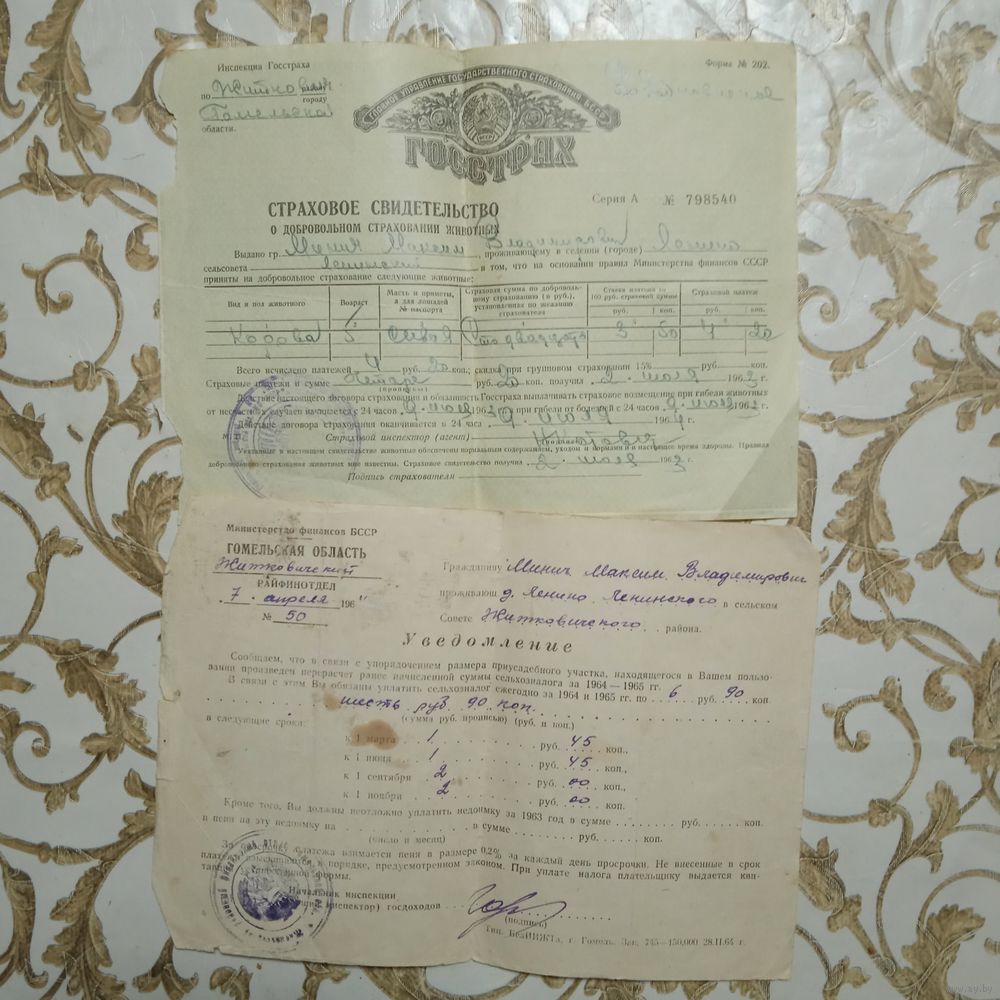 Инспекция Госстраха
Форма № 202.
по Житкович
городу
Гомельска
области.
ГЛАВНОЕ УПРАВЛЕНИЕ ГОСУДАРСТВЕННОГО СТРАХОВАНИЯ БССР
ГОССТРАХ
Серия А № 798540
СТРАХОВОЕ СВИДЕТЕЛЬСТВО
О ДОБРОВОЛЬНОМ СТРАХОВАНИИ ЖИВОТНЫХ
Выдано гр. Минич Максим Владимирович, проживающему в селении (городе) Ленино
сельсовета Ленинский в том, что на основании правил Министерства финансов СССР
приняты на добровольное страхование следующие животные:
Вид и пол животного Возраст Масть и приметы, а для лошадей № паспорта Страховая сумма по добровольному страхованию (в руб.), установленная по желанию страхователя Ставка платежа со 100 руб. страховой суммы руб. коп. Страховой платеж руб. коп.
Корова 5 Сто двадцать 3 50 4 20
Всего исчислено платежей 4 руб. 20 коп.; скидка при групповом страховании 15% руб. коп.
Страховые платежи в сумме Четыре руб. 20 коп. получил 2 июля 1963 г.
(прописью)
Действие настоящего договора страхования и обязанность Госстраха выплачивать страховое возмещение при гибели животных
от несчастных случаев начинается с 24 часов 2 июля 1963 г., при гибели от болезней с 24 часов 9 июля 1963 г.
Действие договора страхования оканчивается в 24 часа 9 июля 1964 г.
Страховой инспектор (агент)
Указанные в настоящем свидетельстве животные обеспечены нормальным содержанием, уходом и кормами и в настоящее время здоровы. Правила
добровольного страхования животных мне известны. Страховое свидетельство получил 2 июля 1963 г.
Подпись страхователя
Министерство финансов БССР
ГОМЕЛЬСКАЯ ОБЛАСТЬ
Житковичский
РАЙФИНОТДЕЛ
7 апреля 1964
№ 50
Гражданину Минич Максим Владимирович
проживающ д. Ленино Ленинского в сельском
Совете Житковичского района.
Уведомление
Сообщаем, что в связи с упорядочением размера приусадебного участка, находящегося в Вашем пользовании произведен перерасчет ранее начисленной суммы сельхозналога за 1964—1965 гг.
В связи с этим Вы обязаны уплатить сельхозналог ежегодно за 1964 и 1965 гг. по 6 руб. 90 коп
шесть руб 90 коп.
(сумма руб. прописью) (руб. и коп.)
в следующие срока:
к 1 марта 1 руб. 45 коп.,
к 1 июня 1 руб. 45 коп.,
к 1 сентября 2 руб. 00 коп.,
к 1 ноября 2 руб. 00 коп.
Кроме того, Вы должны неотложно уплатить недоимку за 1963 год в сумме руб. коп.
и пени на эту недоимку на в сумме руб. коп.
(число и месяц)
За просрочку платежа взимается пеня в размере 0,2% за каждый день просрочки. Не внесенные в срок
платежи взыскиваются в порядке, предусмотренном законом. При уплате налога плательщику выдается квитанция установленной формы.
Начальник инспекции
(старший инспектор) госдоходов
(подпись)
Тип. БелНИЖТа, г. Гомель. Зак. 745—150,000 28.II.64 г.
www.ay.by